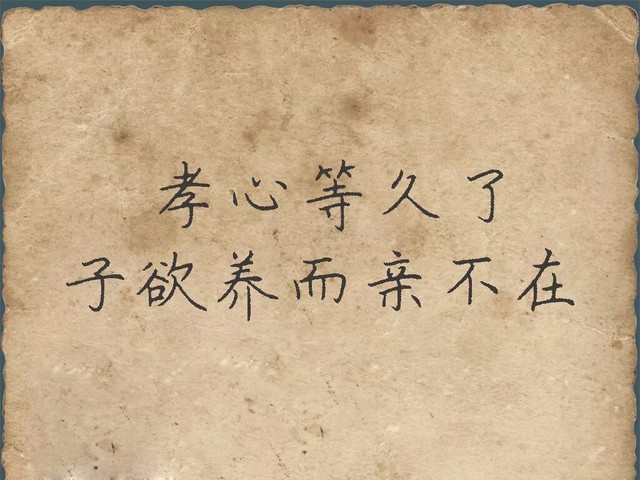 孝心等久了
子欲养而亲不在